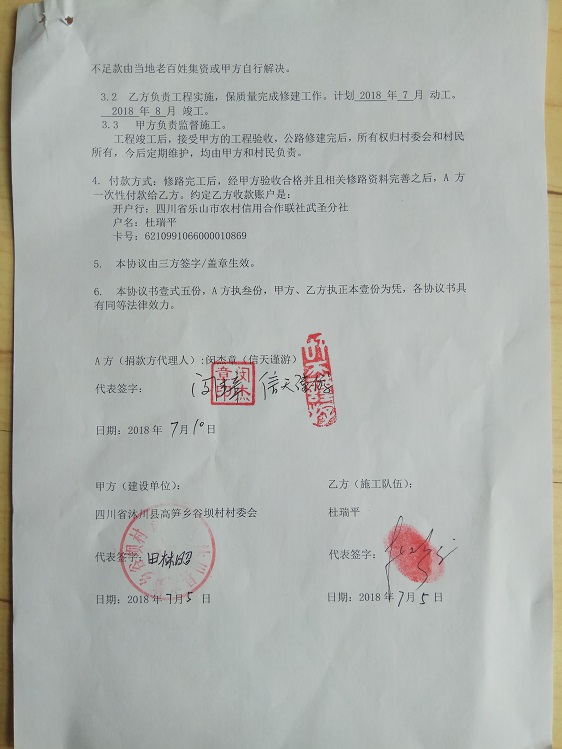 不足款由当地老百姓集资或甲方自行解决。
3.2 乙方负责工程实施，保质量完成修建工作。计划 2018 年 7 月 动工。
2018 年 8 月 竣工。
3.3 甲方负责监督施工。
工程竣工后，接受甲方的工程验收，公路修建完后，所有权归村委会和村民
所有，今后定期维护，均由甲方和村民负责。
4. 付款方式：修路完工后，经甲方验收合格并且相关修路资料完善之后，A 方
一次性付款给乙方。约定乙方收款账户是：
开户行：四川省乐山市农村信用合作联社武圣分社
户名：杜瑞平
卡号：6210991066000010869
5. 本协议由三方签字/盖章生效。
6. 本协议书壹式五份，A 方执叁份，甲方、乙方执正本壹份为凭，各协议书具
有同等法律效力。
A 方（捐款方代理人）:闵杰章（信天谨游）
代表签字： 闵杰章 信天谨游
日期：2018 年 7 月 10 日
甲方（建设单位）：
四川省沐川县高笋乡谷坝村村委会
代表签字：田林昭
日期：2018 年 7 月 5 日
乙方（施工队伍）：
杜瑞平
代表签字：
日期：2018 年 7 月 5 日